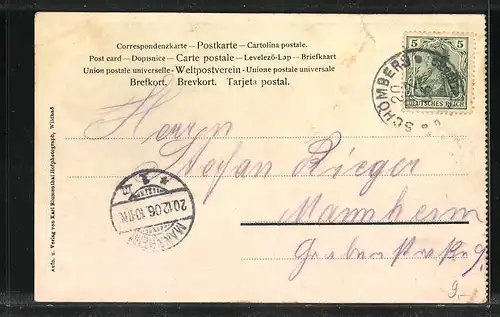 Correspondenzkarte — Postkarte — Cartolina postale.
Post card — Dopisnice — Carte postale — Levelezö-Lap — Briefkaart
Union postale universelle — Weltpostverein — Unione postale universale
Brefkort. Brevkort. Tarjeta postal.
5 5
DEUTSCHES REICH
SCHÖMBERG
20
Herrn
Stefan Rieger
Mannheim
Grabenstraße 9.
MANNHEIM
20.12.06.
* 1
Aufn. u. Verlag von Karl Blumenthal Hofphotograph, Wildbad
9,-